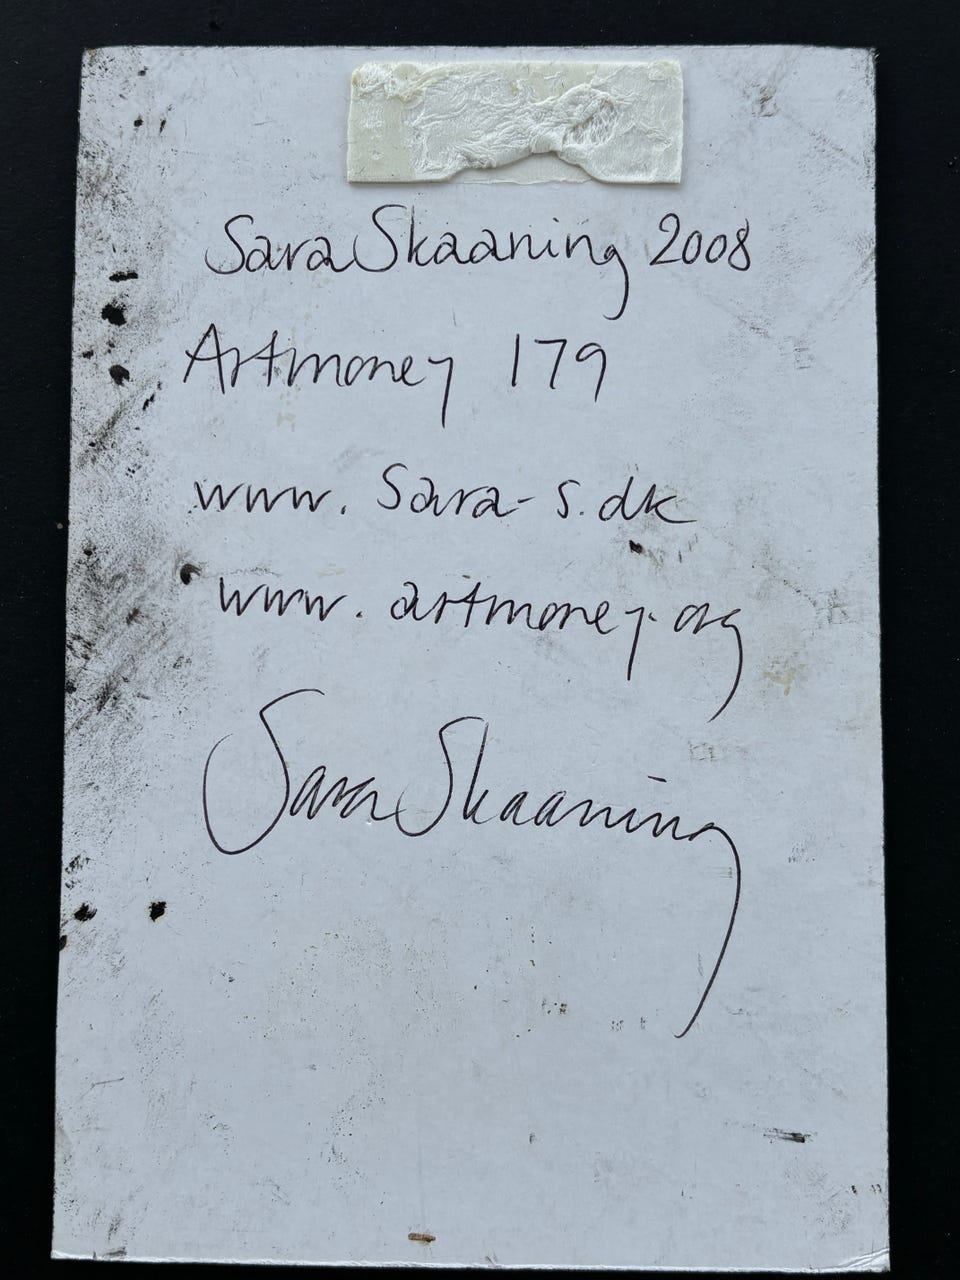 Sara Skaaning 2008
Artmoney 179
www. Sara-s.dk
www. artmoney.org
Sara Skaaning